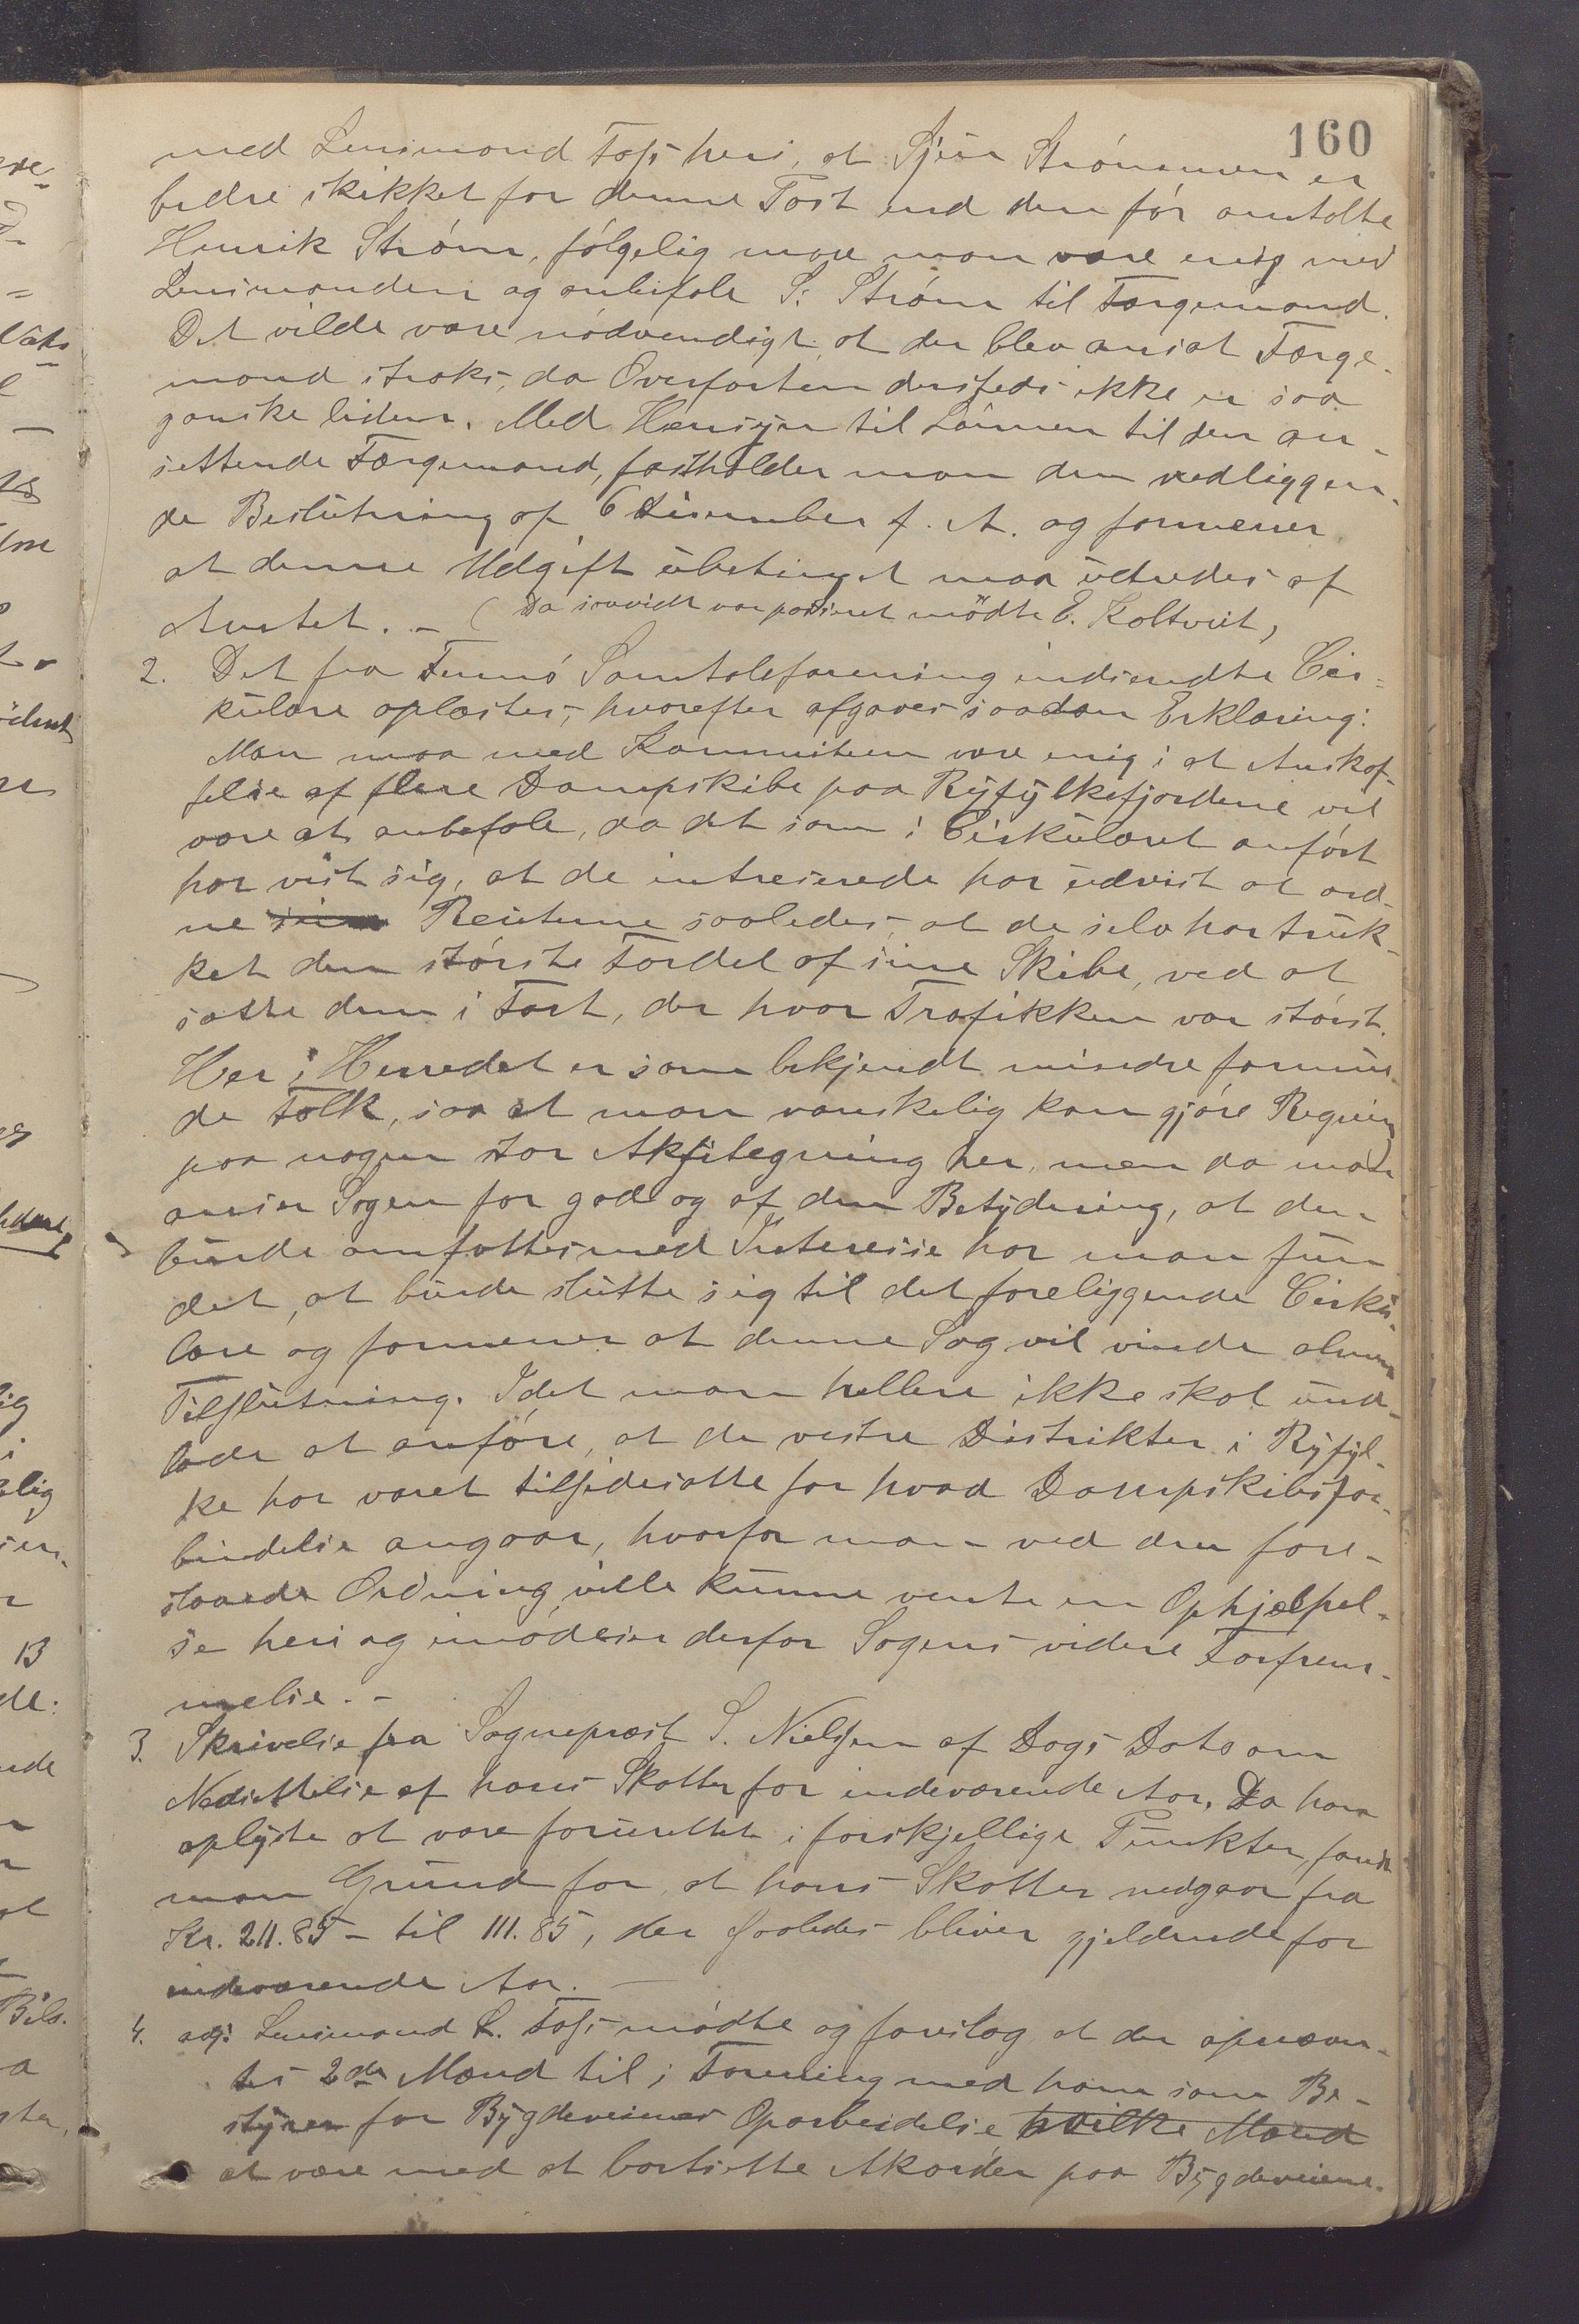 160
med Lensmand Tofs heri, at Sjur Strømmen er
bedre skikket for denne Post end den før omtalte
Henrik Strøm, følgelig maa man være enig med
Lensmanden og anbefale S: Strøm til Færgemand.
Det vilde være nødvendigt, at der blev ansat Færge-
mand straks, da Overfarten dersteds ikke er saa
ganske liden. Med Hensyn til Lønnen til den an-
settende Færgemand, fastholder man den vedliggen-
de Beslutning af 6 Desember f. A. og formener
at denne Udgift ubetinget maa udredes af
Amtet. - (Da saavidt var passeret mødte E. Koltveit,
2. Det fra Finnø Samtaleforening indsendte Cir=
kulære oplæstes, hvorefter afgaves saadan Erklæring:
Man maa med Kommiteen være enig i at Anskaf-
felse af flere Dampskibe paa Ryfylkefjordene vil
være at anbefale, da det som i Cirkulæret anført
har vist sig, at de intreserede har udvist at ord-
ne sine Reuterne saaledes, at de selv har truk-
ket den største Fordel af sine Skibe, ved at
sætte dem i Fart, der hvor Trafikken var størst.
Her i Herredet er som bekjendt mindre formuen-
de Folk, saa at man vanskelig kan gjøre Regning
paa nogen stor Aktietegning her, men da man
anser Sagen for god og af den Betydning, at den
burde omfattes med Interesse har man fun
det, at burde slutte sig til det foreliggende Cirku-
lære og formener at denne Sag vil vinde almen
Tilslutning. Idet man hellere ikke skal und-
lade at anføre, at de vestre Distrikter i Ryfyl-
ke har været tilsidesatte for hvad Dampskibsfor-
bindelse angaar, hvorfor man ved den fore-
staaede Ordning ville kunne vente en Ophjælpel-
se heri og imødeser derfor Sagens videre Forfrem-
melse. -
3. Skrivelse fra Sognepræst S. Nielsen af Dags Dato om
Nedsettelse af hans Skatter for indeværende Aar. Da han
oplyste at være forurettet i forskjellige Punkter, fandt
man Grund for, at hans Skatter nedgaar fra
Kr. 211.85 - til 111.85, der saaledes bliver gjeldende for
indeværende Aar. -
4. Lensmand L. Tofs mødte og foreslog at der opnævn-
tes 2de Mænd til i Forening med ham som Be-
styrer for Bygdeveienes Oparbeidelse hvilke Mænd
at være med at bortsette Akorder paa Bygdeveiene.